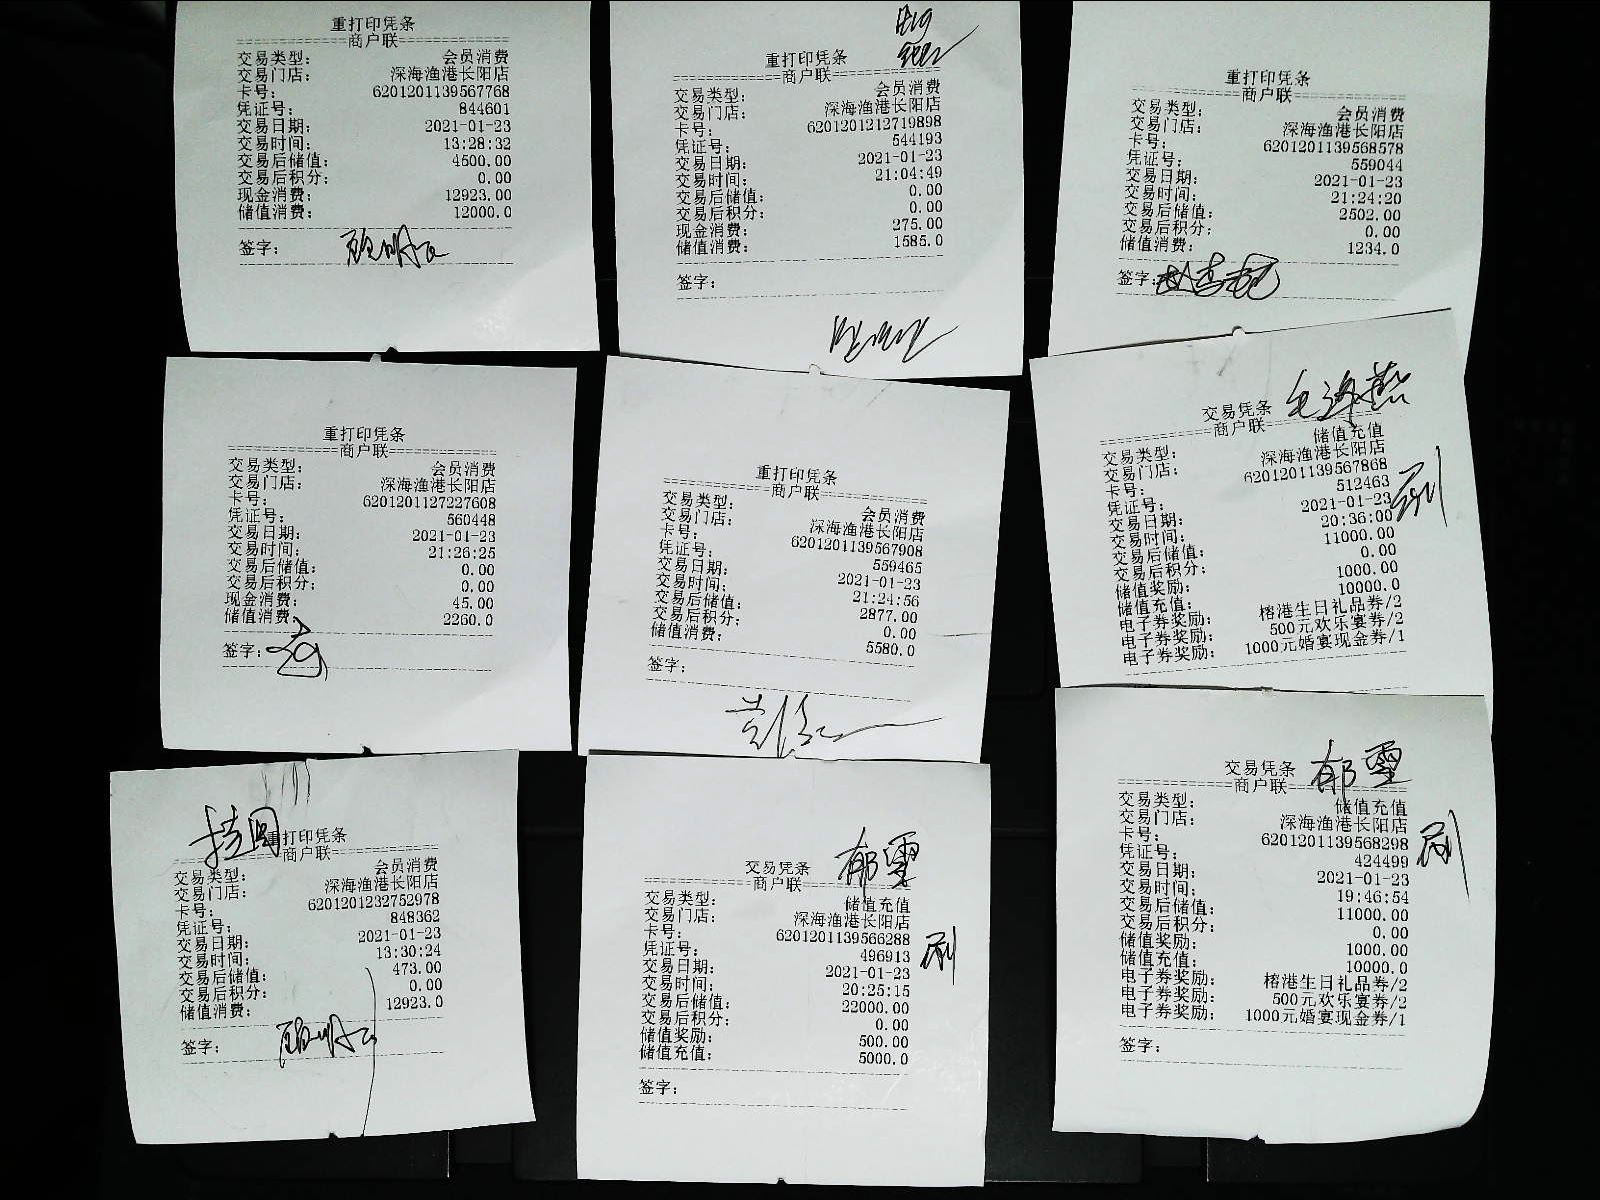 重打印凭条
商户联
交易类型: 会员消费
交易门店: 深海渔港长阳店
卡号: 6201201139567768
凭证号: 844601
交易日期: 2021-01-23
交易时间: 13:28:32
交易后储值: 4500.00
交易后积分: 0.00
现金消费: 12923.00
储值消费: 12000.0
签字:
重打印凭条
商户联
交易类型: 会员消费
交易门店: 深海渔港长阳店
卡号: 6201201212719898
凭证号: 544193
交易日期: 2021-01-23
交易时间: 21:04:49
交易后储值: 0.00
交易后积分: 0.00
现金消费: 275.00
储值消费: 1585.0
签字:
重打印凭条
商户联
交易类型: 会员消费
交易门店: 深海渔港长阳店
卡号: 6201201139568578
凭证号: 559044
交易日期: 2021-01-23
交易时间: 21:24:20
交易后储值: 2502.00
交易后积分: 0.00
储值消费: 1234.0
签字:
重打印凭条
商户联
交易类型: 会员消费
交易门店: 深海渔港长阳店
卡号: 6201201127227608
凭证号: 560448
交易日期: 2021-01-23
交易时间: 21:26:25
交易后储值: 0.00
交易后积分: 0.00
现金消费: 45.00
储值消费: 2260.0
签字:
重打印凭条
商户联
交易类型: 会员消费
交易门店: 深海渔港长阳店
卡号: 6201201139567908
凭证号: 559465
交易日期: 2021-01-23
交易时间: 21:24:56
交易后储值: 2877.00
交易后积分: 0.00
储值消费: 5580.0
签字:
交易凭条
商户联
交易类型: 储值充值
交易门店: 深海渔港长阳店
卡号: 6201201139567868
凭证号: 512463
交易日期: 2021-01-23
交易时间: 20:36:00
交易后储值: 11000.00
交易后积分: 0.00
储值奖励: 1000.00
储值充值: 10000.0
电子券奖励: 榕港生日礼品券/2
电子券奖励: 500元欢乐宴券/2
电子券奖励: 1000元婚宴现金券/1
重打印凭条
商户联
交易类型: 会员消费
交易门店: 深海渔港长阳店
卡号: 6201201232752978
凭证号: 848362
交易日期: 2021-01-23
交易时间: 13:30:24
交易后储值: 473.00
交易后积分: 0.00
储值消费: 12923.0
签字:
交易凭条 郁雯
商户联
交易类型: 储值充值
交易门店: 深海渔港长阳店
卡号: 6201201139566288
凭证号: 496913 刷
交易日期: 2021-01-23
交易时间: 20:25:15
交易后储值: 22000.00
交易后积分: 0.00
储值奖励: 500.00
储值充值: 5000.0
签字:
交易凭条
商户联
交易类型: 储值充值
交易门店: 深海渔港长阳店
卡号: 6201201139568298
凭证号: 424499 刷
交易日期: 2021-01-23
交易时间: 19:46:54
交易后储值: 11000.00
交易后积分: 0.00
储值奖励: 1000.00
储值充值: 10000.0
电子券奖励: 榕港生日礼品券/2
电子券奖励: 500元欢乐宴券/2
电子券奖励: 1000元婚宴现金券/1
签字: